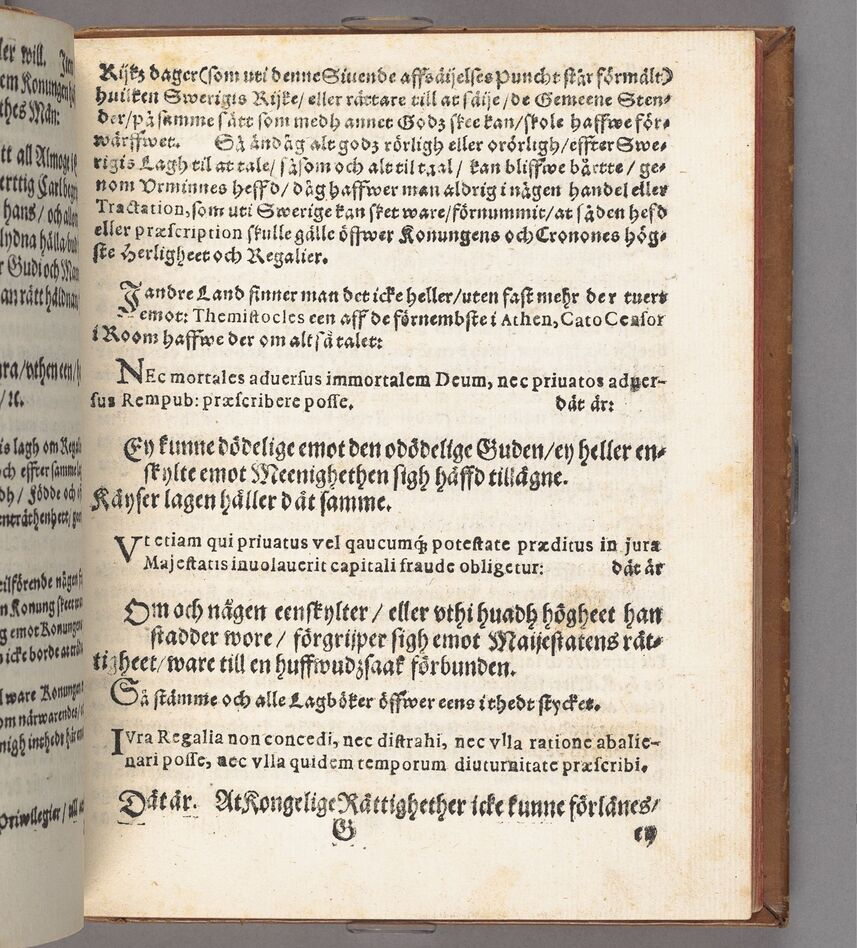 ler will.
em Konungen
thes Män:
tt all Almoge
erttig Carl
hans / och allen
lydna hålla
r Gudi och
an rätt
/ ꝛc.
is lagh om
och effter
dh / Födde och
tilförende någen
n Konung
g emot Konungen
icke borde
l ware Konungen
om närwarendes
nigh inthedt
Priwllegier /
Rijkz dager (som uti denne Siuende affsäijelses Puncht står förmält)
huilken Swerigis Rijke / eller rättare till at säije / de Gemeene Sten-
der / på samme sätt som medh annet Godz skee kan / skole haffwe för-
wärffwet. Så ändåg alt godz rörligh eller orörligh / effter Swe-
rigis Lagh til at tale / såsom och alt til taal / kan bliffwe bårtte / ge-
nom Vrminnes heffd / dåg haffwer man aldrig i någen handel eller
Tractation, som uti Swerige kan sket ware / förnummit / at såden hefd
eller præscription skulle gälle öffwer Konungens och Cronones hög-
ste Herligheet och Regalier.
J andre Land finner man det icke heller / uten fast mehr der tuert
emot: Themistocles een aff de förnembste i Athen, Cato Censor
i Room haffwe der om alt så talet:
NEc mortales adversus immortalem Deum, nec privatos adver-
sus Rempub: præscribere posse. dät är:
Ey kunne dödelige emot den odödelige Guden / ey heller en-
skylte emot Meenighethen sigh häffd tillägne.
Käyser lagen håller dät samme.
Vt etiam qui privatus vel qaucumq; potestate præditus in jura
Majestatis involaverit capitali fraude obligetur: dät är
Om och någen eenskylter / eller vthi huadh högheet han
stadder wore / förgrijper sigh emot Maijestatens rät-
tigheet / ware till en huffwudzsaak förbunden.
Så stämme och alle Lagböker öffwer eens i thedt stycket.
IVra Regalia non concedi, nec distrahi, nec vlla ratione abalie-
nari posse, nec vlla quidem temporum diuturnitate præscribi.
Dät är. At Kongelige Rättighether icke kunne förlänes /
G ey